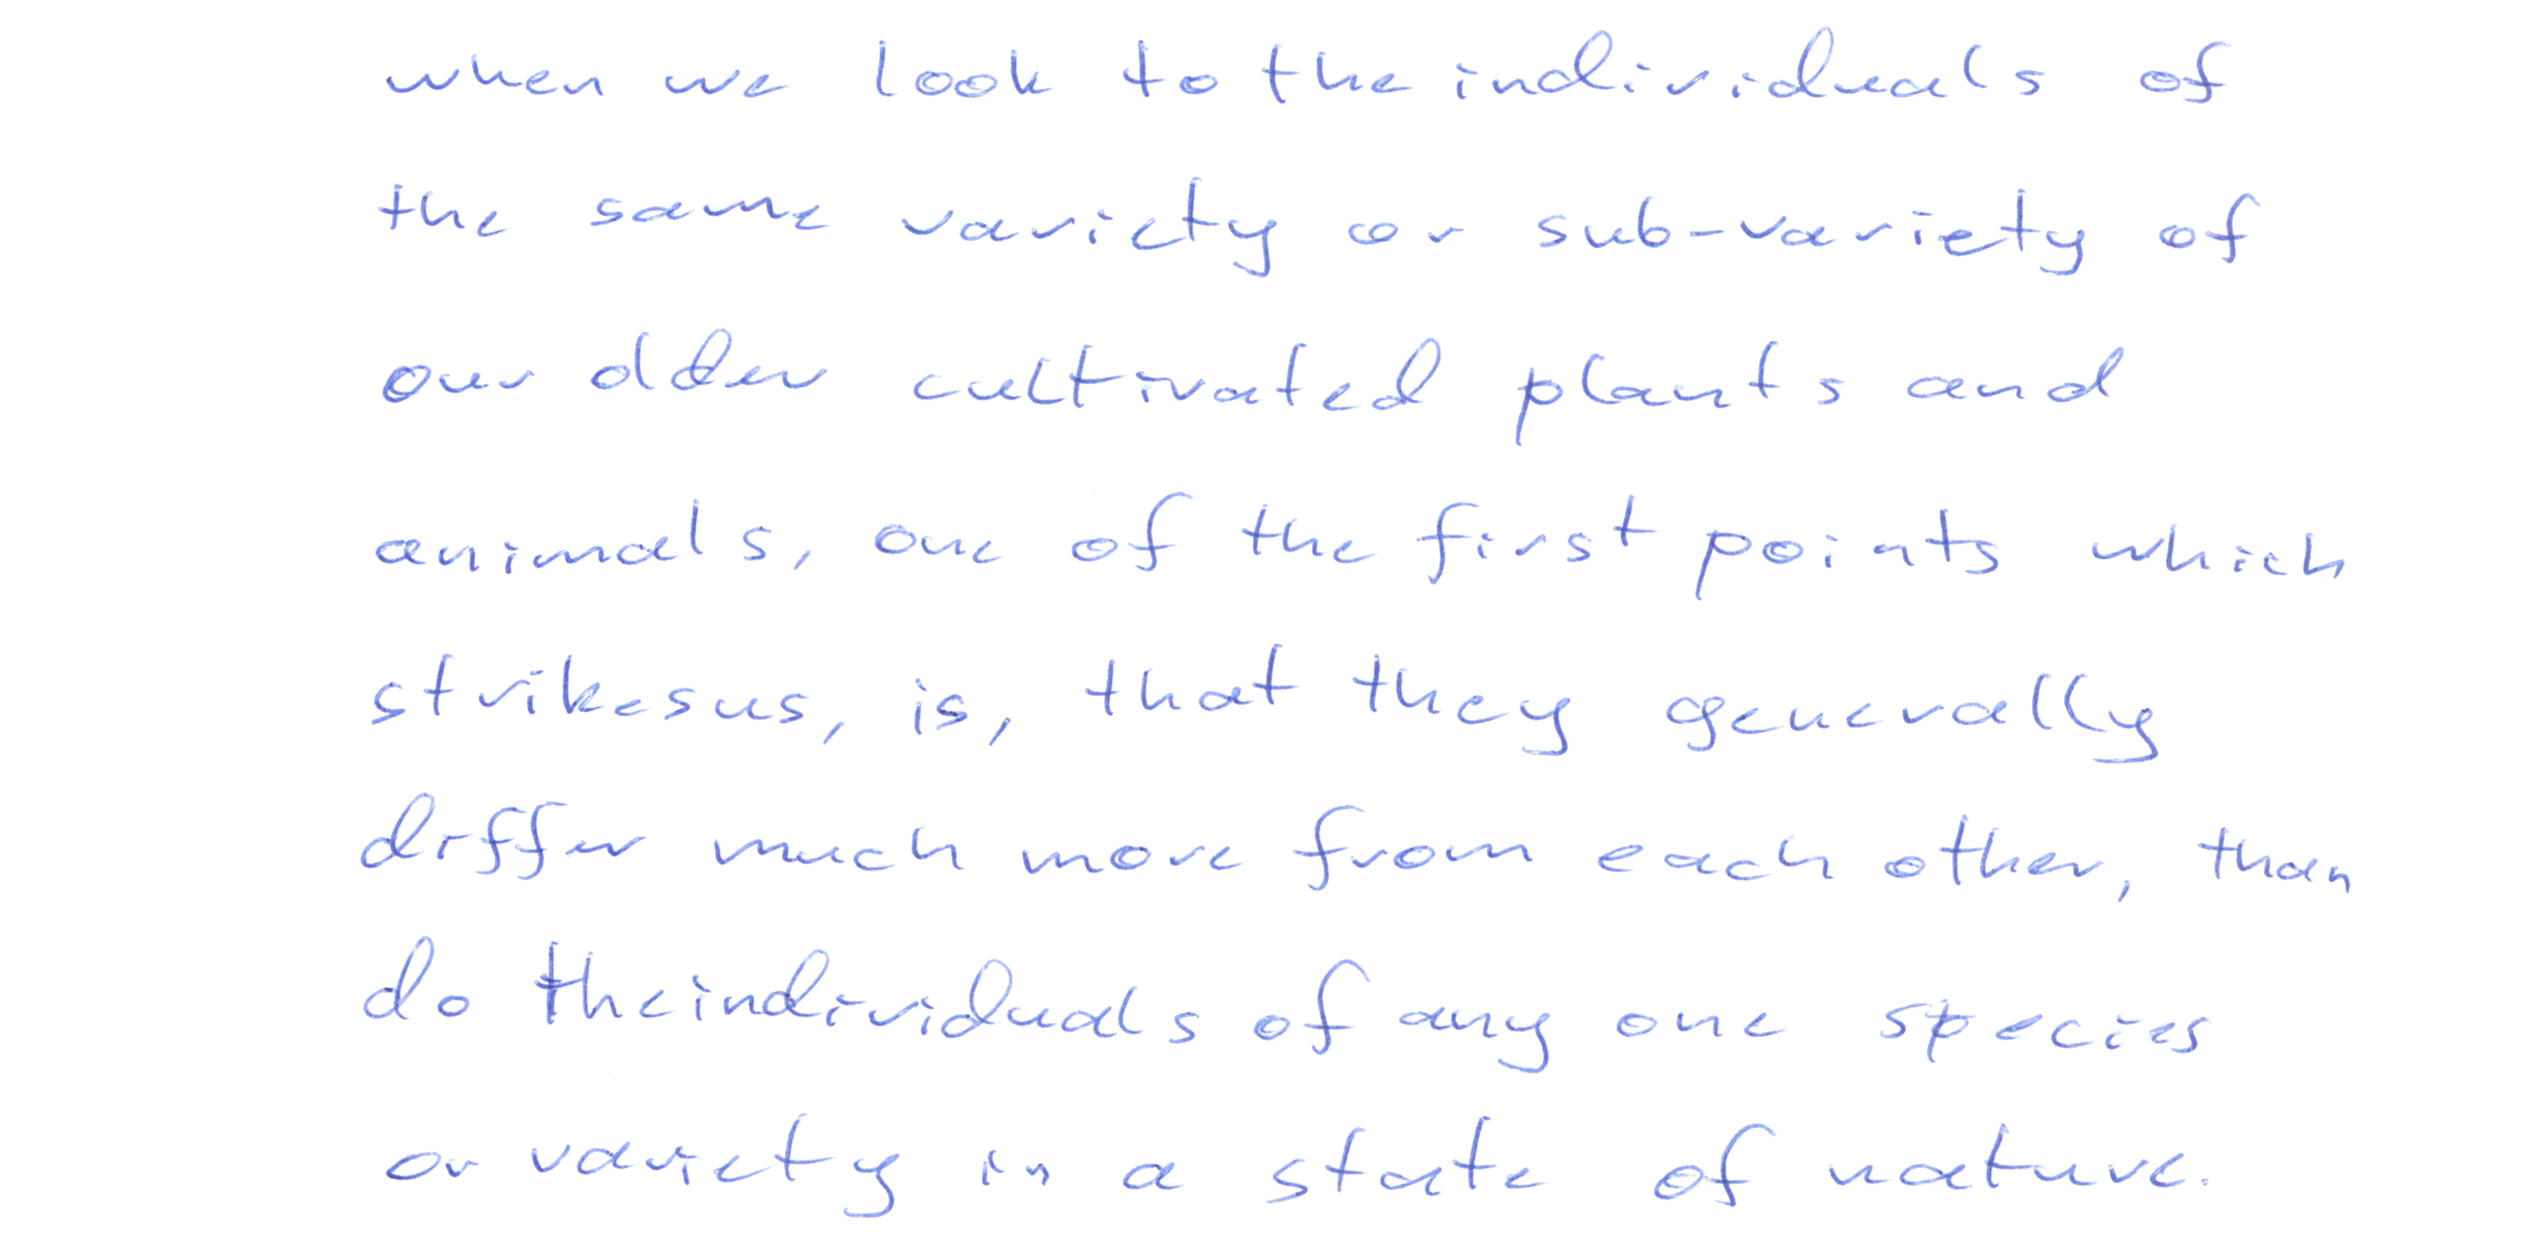 when we look to the individuals of
the same variety or sub-variety of
our older cultivated plants and
animals, one of the first points which
strikes us, is, that they generally
differ much more from each other, than
do the individuals of any one species
or variety in a state of nature.